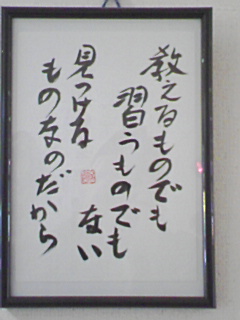 教えるものでも
習うものでも
ない
見つける
ものなのだから